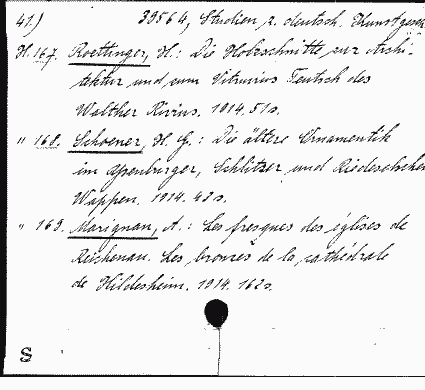 41.) 39564, Studien z. deutsch. Kunstgesch
H. 167. Roettinger, H.: Die Holzschnitte zur Archi-
tektur und zum Vitruvius Teutsch des
Walther Rivius. 1914. 51 s.
" 168. Schoener, H. G.: Die ältere Ornamentik
im Ysenburger, Schlitzer und Riedeselschen
Wappen. 1914. 42 s.
" 169. Marignan, A.: Les fresques des églises de
Reichenau. Les bronzes de la cathédrale
de Hildesheim. 1914. 162 s.
S